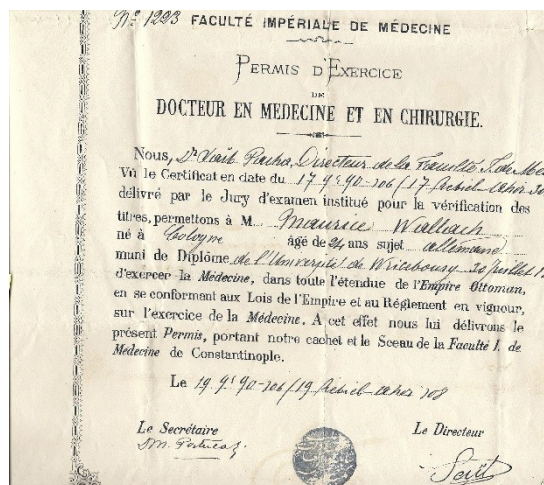 Nº 1223 FACULTÉ IMPÉRIALE DE MÉDECINE
PERMIS D'EXERCICE
DE
DOCTEUR EN MEDECINE ET EN CHIRURGIE.
Nous, Dr Pacha, Directeur de la Faculté I. de Me
Vu le Certificat en date du 17
délivré par le Jury d'examen institué pour la vérification des
titres, permettons à M Maurice Wallach
né à Cologne âgé de 24 ans sujet allemand
muni de Diplôme de l'Université de 30 juillet 1
d'exercer la Médecine, dans toute l'étendue de l'Empire Ottoman,
en se conformant aux Lois de l'Empire et au Réglement en vigueur,
sur l'exercice de la Médecine. A cet effet nous lui délivrons le
présent Permis, portant notre cachet et le Sceau de la Faculté I. de
Médecine de Constantinople.
Le 19
Le Secrétaire Le Directeur